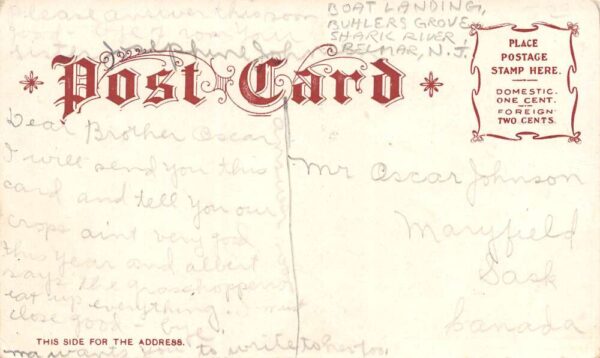 Please answer this soon
good - bye from your
sister Josephine John
BOAT LANDING,
BUHLERS GROVE
SHARK RIVER
BELMAR, N.J.
Post Card
PLACE
POSTAGE
STAMP HERE.
DOMESTIC.
ONE CENT.
FOREIGN
TWO CENTS.
Dear Brother Oscar
I will send you this
card and tell you our
crops aint very good
this year and albert
says the grasshoppers
eat up everything. I must
close good - bye
ma wants you to write to her too,
Mr Oscar Johnson
Maryfield
Sask
Canada
THIS SIDE FOR THE ADDRESS.